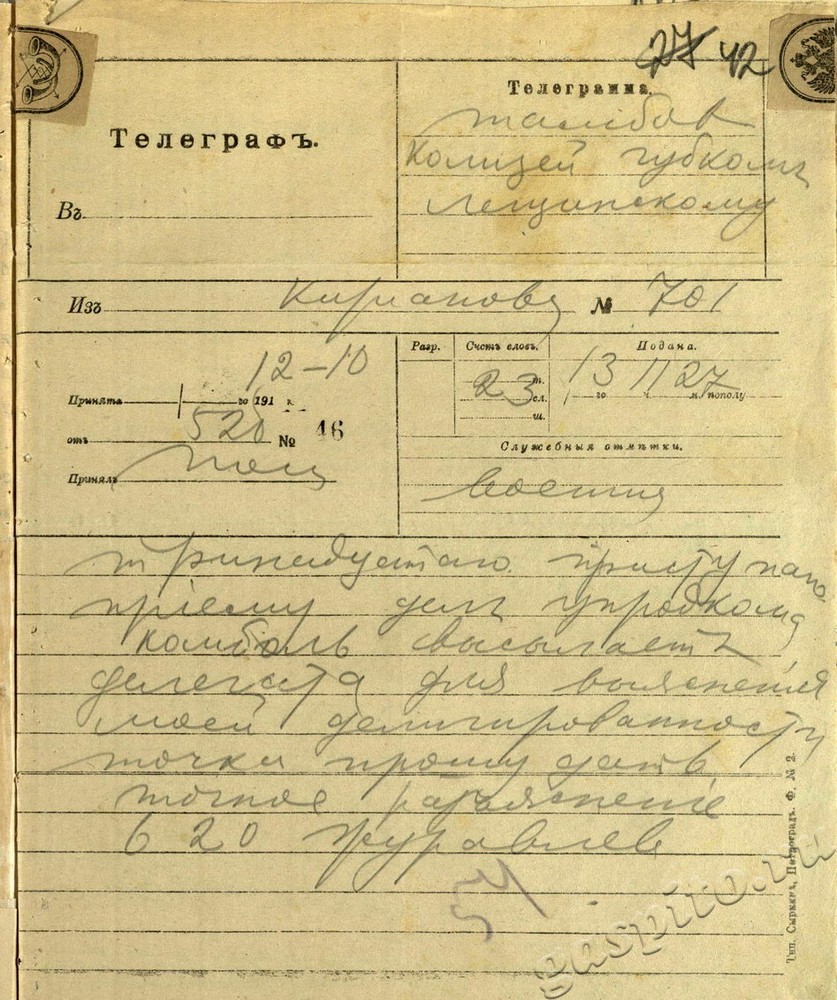 27 42
Телеграфъ.
Въ
Телеграмма.
Тамбов
Колизей губкома
Лещинскому
Изъ Кирсанова № 701
12-10
Принята го 191 г.
отъ 520 № 46
Принялъ
Разр.
Счетъ словъ.
23
т.
сл.
ш.
Подана.
13 11 27
го ч. м. пополу
Служебныя отмѣтки.
военная
тринадцатаго приступаю
приему дел упродкома
комболь высылает
делегата для выяснения
моей делигированности
точка прошу дать
точное разъяснение
620 Журавлев
Тип. Сыркина, Петроградъ. Ф. № 2.
gaspito.ru